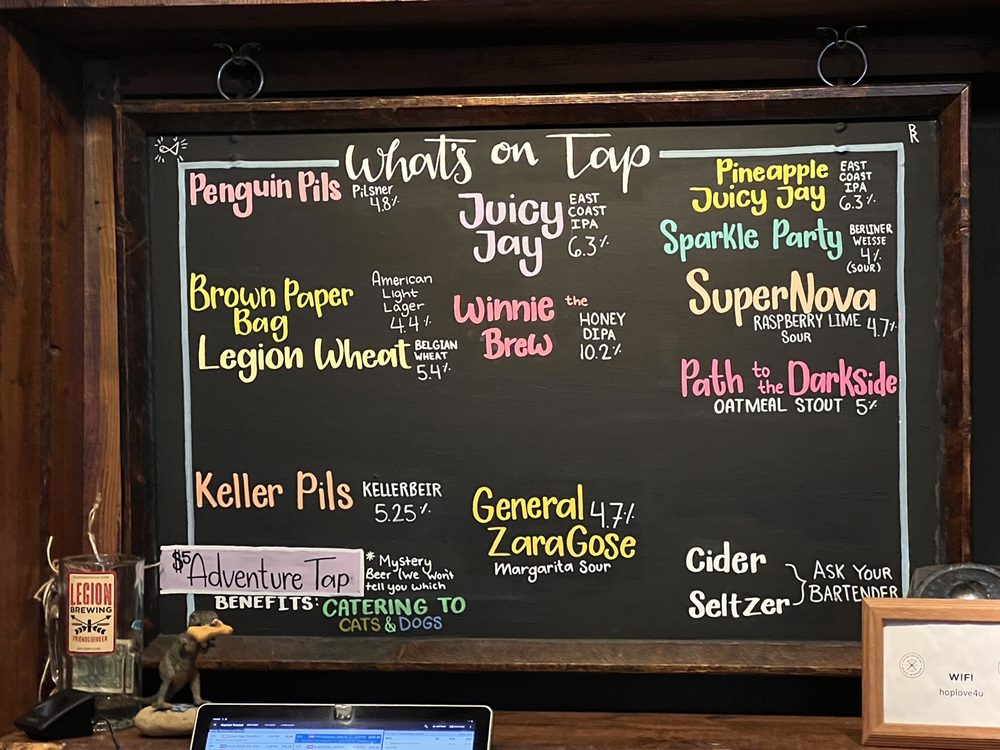 What's on Tap
R
Penguin Pils
Pilsner
4.8%
Brown Paper
Bag
American
Light
Lager
4.4%
Legion Wheat
BELGIAN
WHEAT
5.4%
Keller Pils
KELLERBEIR
5.25%
$5 Adventure Tap
* Mystery
Beer (we won't
tell you which
BENEFITS: CATERING TO
CATS & DOGS
Juicy
Jay
EAST
COAST
IPA
6.3%
Winnie the
Brew
HONEY
DIPA
10.2%
General 4.7%
ZaraGose
Margarita Sour
Pineapple
Juicy Jay
EAST
COAST
IPA
6.3%
Sparkle Party
BERLINER
WEISSE
4%
(SOUR)
SuperNova
RASPBERRY LIME 4.7%
SOUR
Path to the Darkside
OATMEAL STOUT 5%
Cider
Seltzer
ASK YOUR
BARTENDER
LEGION
BREWING
WIFI
hoplove4u